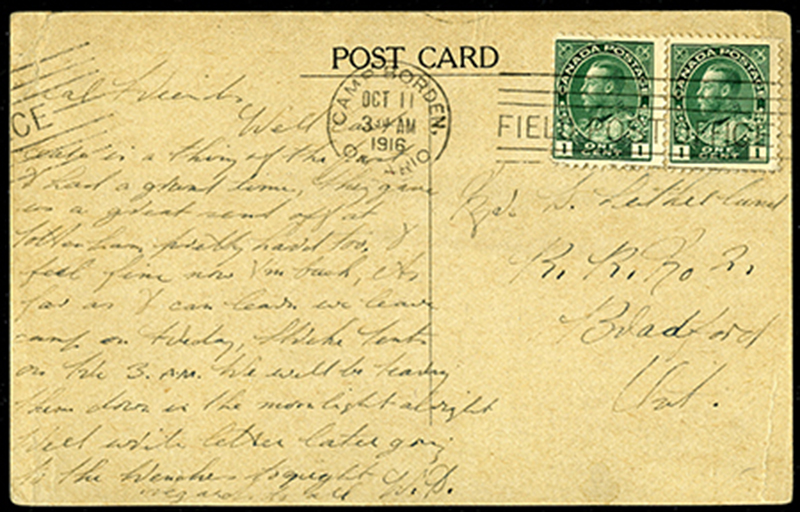 POST CARD
CAMP BORDEN,
OCT 11
3 AM
1916
ONTARIO
FIELD POST OFFICE
CANADA POSTAGE
1 ONE CENT 1
CANADA POSTAGE
1 ONE CENT 1
CE
Friends,
Well
is a thing of the past
I had a grand time, they gave
us a great send off at
Tottenham pretty hard too. I
feel fine now I'm back, As
far as I can learn we leave
camp on Friday, Strike tents
on the 3. A.M. We will be tearing
them down in the moonlight alright
Will write letter later going
to the trenches tonight
regards to all W.D.
S.
R. R. No 2.
Bradford
Ont.